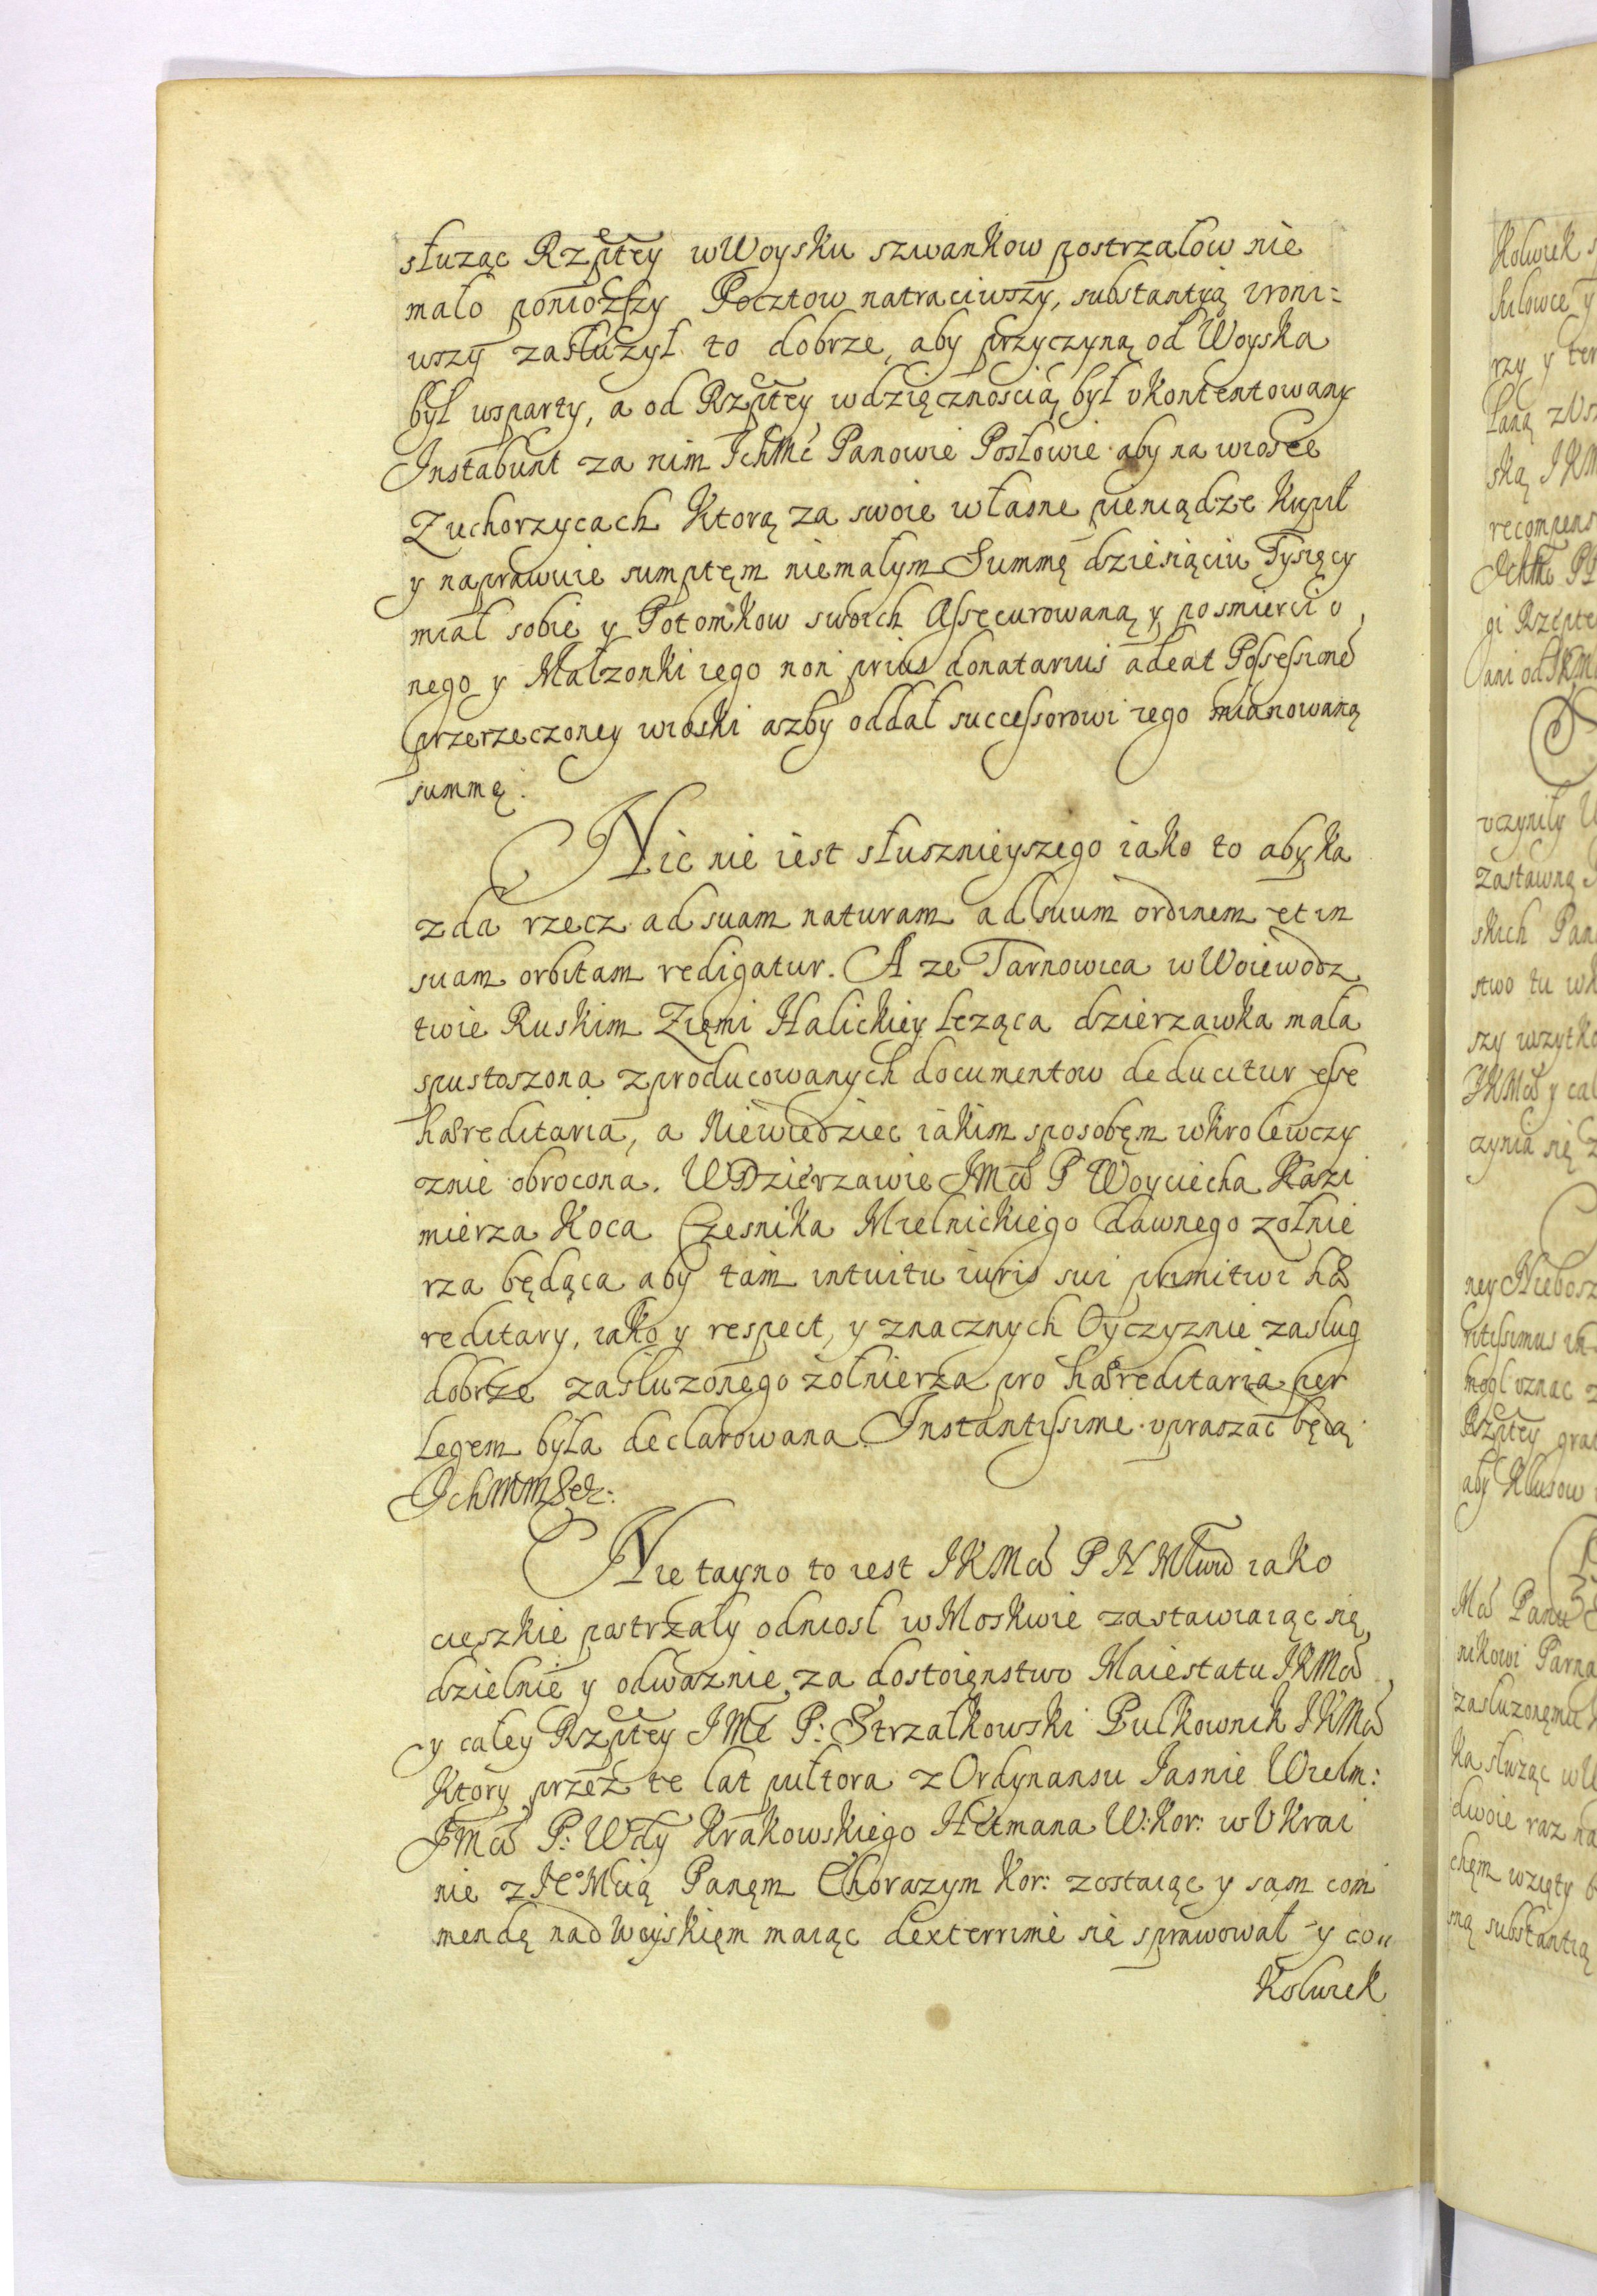 służąc Rzptey w Woysku szwankow postrzałow nie
mało poniozszy Pocztow natraciwszy, substantyą vroni=
wszy zasłużył to dobrze, aby przyczyną od Woyska
był wsparty, a od Rzptey wdzięcznoscią był vkontentowany
Instabunt za nim IchMć Panowie Posłowie aby na wiosce
Zuchorzycach Ktorą za swoie własne pieniądze Kupił
y naprawuie sumptęm niemałym Summę dziesiąciu Tysięcy
miał sobie y Potomkow swoich Assecurowaną y po smierci o
nego y Małzonki iego non prius donatarius adeat Possessione
przerzeczoney wioski azby oddał successorowi iego mianowaną
summę.
Nic nie iest słusznieyszego iako to aby ka
zda rzecz ad suam naturam ad suum ordinem et in
suam orbitam redigatur. A ze Tarnowica w Woiewodz
twie Ruskim Zięmi Halickiey leząca dzierzawka mała
spustoszona z producowanych documentow deducitur esse
haereditaria, a niewiedziec iakim sposobęm w krolewczy
znie obrocona. W Dzierzawie JMći P Woyciecha Kazi
mierza Koca Czesnika Mielnickiego dawnego zołnie
rza będąca aby tam intuitu iuris sui primitivi hae
reditary, iako y respect, y znacznych Oyczyznie zasług
dobrze zasłuzonego zołnierza pro haereditaria per
legem była declarowana Instantissime vpraszac będą
Ichmm &c:
Nie tayno to iest IKMći P N Młwo iako
cieszkie postrzały odniosł w Moskwie zastawiaiąc się
dzielnie y odwaznie, za dostoięnstwo Maiestatu IKMći
y całey Rzptey JMć P: Strzałkowski Pułkownik IKMći
Ktory przez te lat pułtora z Ordynansu Jasnie Wielm:
JMći P: Wdy Krakowskiego Hetmana W: Kor: w Vkrai
nie z JeMcią Panęm Chorazym Kor: zostaiąc y sam com
mendę nad Woyskięm maiąc dexterrime się sprawował y co
Kolwiek
Kolwiek
rzy y
recompens
gi Rzepte
vczyniły
Zastawną
skich
stwo tu
szy wszytko
IKMći y
czynia się
ney
mogł vznac
Rzptey
aby
Mći Panu
nikowi
zasłuzonęmu
ka słuząc
dwoie raz na
chęm wzięty
sną substantią